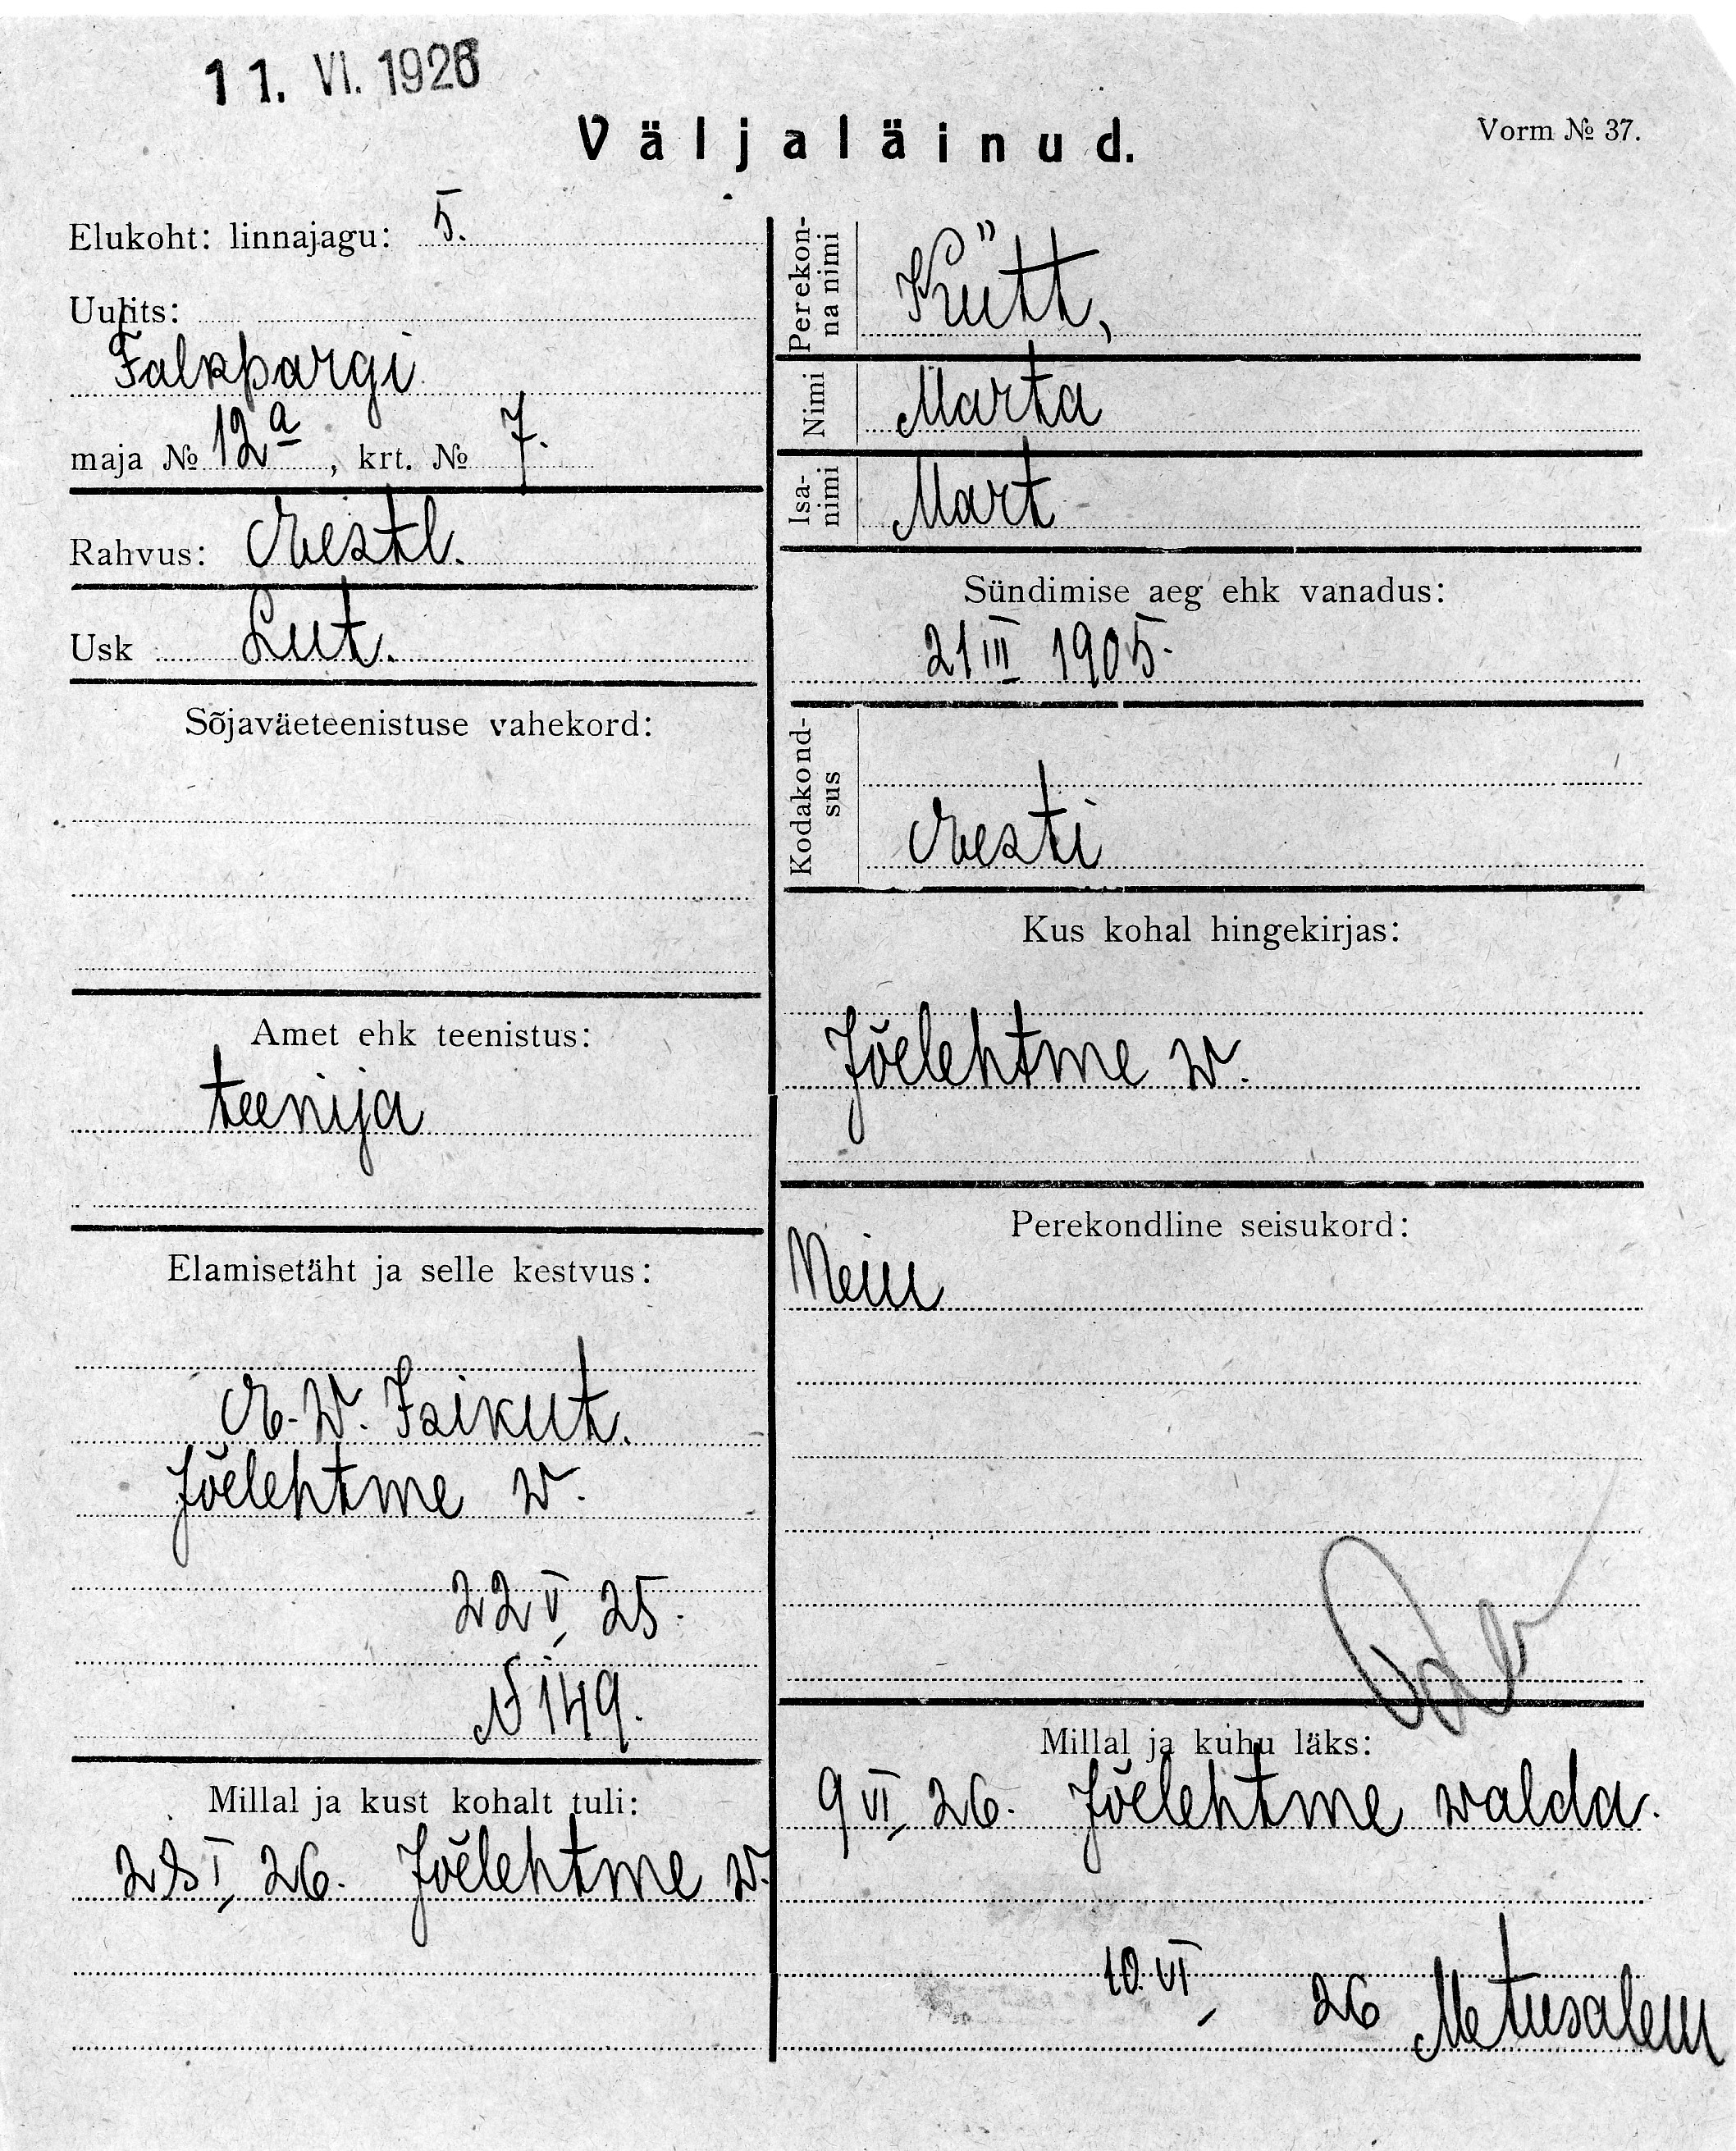 11. VI. 1926
Väljaläinud.
Vorm № 37.
Elukoht: linnajagu: 5.
Uulits:
Falkpargi
maja № 12a, krt. № 7.
Rahvus: Eestl.
Usk Lut.
Sõjaväeteenistuse vahekord:
Amet ehk teenistus:
teenija
Elamisetäht ja selle kestvus:
E. W. Isikut.
Jõelehtme w.
22 V 25.
N 149.
Millal ja kust kohalt tuli:
28 I 26. Jõelehtme w.
Perekonna nimi
Kütt,
Nimi
Marta
Isanimi
Mart
Sündimise aeg ehk vanadus:
21 III 1905.
Kodakondsus
Eesti
Kus kohal hingekirjas:
Jõelehtme w.
Perekondline seisukord:
Neiu
Millal ja kuhu läks:
9 VI 26. Jõelehtme walda.
10 VI 26 Metusalem